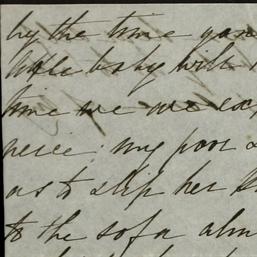 by the time you
little baby will
time we are ex
niece: my poor
as to slip her
to the sofa alm